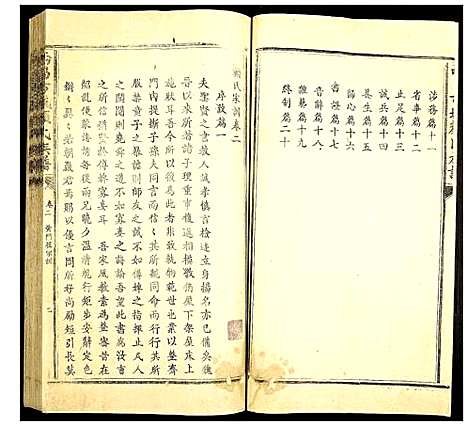 涉務篇十一
省事篇十二
止足篇十三
誡兵篇十四
養生篇十五
歸心篇十六
書證篇十七
音辭篇十八
雜藝篇十九
終制篇二十
顏氏家訓卷二
序致篇一
夫聖賢之書教人誠孝慎言檢迹立身揚名亦已備矣魏
晉以來所著諸子理重事複遞相模斅猶屋下架屋床上
施床耳吾今所以復為此者非敢軌物範世也業以整齊
門內提撕子孫夫同言而信信其所親同命而行行其所
服禁童子之暴謔則師友之誡不如傅婢之指揮止凡人
之鬬鬩則堯舜之道不如寡妻之誨諭吾望此書為汝曹
之所信猶賢於傅婢寡妻耳 吾家風教素為整密昔在
齠齔便蒙誨誘每從兩兄曉夕溫凊規行矩步安辭定色
鏘鏘翼翼若朝嚴君焉賜以優言問所好尚勵短引長莫
卷二 黃門祖家訓